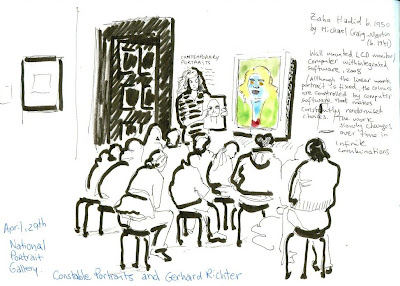 Zaha Hadid b. 1950
by Michael Craig-Martin
(b. 1941)
Wall mounted LCD monitor/
computer with integrated
software, 2008
(Although the linear work
portrait is fixed, the colours
are controlled by computer
software that makes
constantly randomised
choices. The work
slowly changes
over time in
infinite
combinations
CONTEMPORARY
PORTRAITS
April, 29th
National
Portrait
Gallery.
Constable Portraits and Gerhard Richter